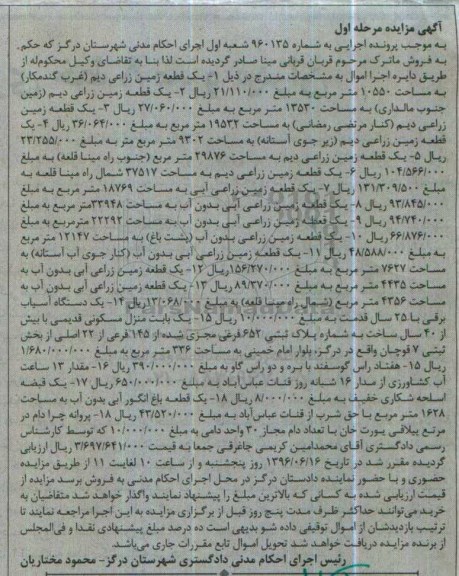 آگهی مزایده مرحله اول
به موجب پرونده اجرایی به شماره ۹۶۰۱۳۵ شعبه اول اجرای احکام مدنی شهرستان درگز که حکم
به فروش ماترک مرحوم قربان قربانی مینا صادر گردیده است لذا بنا به تقاضای وکیل محکوم‌له از
طریق دایره اجرا اموال به مشخصات مندرج در ذیل ۱- یک قطعه زمین زراعی دیم (غرب گندمکار)
به مساحت ۱۰۵۵۰ متر مربع به مبلغ ۲۱/۱۱۰/۰۰۰ ریال ۲- یک قطعه زمین زراعی دیم (زمین
جنوب مالداری) به مساحت ۱۳۵۳۰ متر مربع به مبلغ ۲۷/۰۶۰/۰۰۰ ریال ۳- یک قطعه زمین
زراعی دیم (کنار مرتضی رمضانی) به مساحت ۱۹۵۳۲ متر مربع به مبلغ ۳۶/۰۶۴/۰۰۰ ریال ۴- یک
قطعه زمین زراعی دیم (زیر جوی آستانه) به مساحت ۹۳۰۲ متر مربع متر به مبلغ ۲۳/۲۵۵/۰۰۰
ریال ۵- یک قطعه زمین زراعی دیم به مساحت ۲۹۸۷۶ متر مربع (جنوب راه مینا قلعه) به مبلغ
۱۰۴/۵۶۶/۰۰۰ ریال ۶- یک قطعه زمین زراعی دیم به مساحت ۳۷۵۱۷ شمال راه مینا قلعه به
مبلغ ۱۳۱/۳۰۹/۵۰۰ ریال ۷- یک قطعه زمین زراعی آبی به مساحت ۱۸۷۶۹ متر مربع به مبلغ
۹۳/۸۴۵/۰۰۰ ریال ۸- یک قطعه زمین زراعی آبی بدون آب به مساحت ۳۳۹۴۸متر مربع به مبلغ
۹۴/۷۴۰/۰۰۰ ریال ۹- یک قطعه زمین زراعی آبی بدون آب به مساحت ۲۲۲۹۲ مترمربع به مبلغ
۶۶/۸۷۶/۰۰۰ ریال ۱۰- یک قطعه زمین زراعی بدون آب (پشت باغ) به مساحت ۱۲۱۴۷ متر مربع
به مبلغ ۴۸/۵۸۸/۰۰۰ ریال ۱۱- یک قطعه زمین زراعی آبی بدون آب (کنار جوی آب آستانه) به
مساحت ۷۶۲۷ متر مربع به مبلغ ۱۵۶/۲۷۰/۰۰۰ریال ۱۲- یک قطعه زمین زراعی آبی بدون آب به
مساحت ۴۴۳۵ متر مربع به مبلغ ۸۹/۳۷۰/۰۰۰ ریال ۱۳- یک قطعه زمین زراعی آبی بدون آب به
مساحت ۴۳۵۶ متر مربع (شمال راه مینا قلعه) به مبلغ ۱۳/۰۶۸/۰۰۰ ریال ۱۴- یک دستگاه آسیاب
برقی با ۲۵ سال قدمت به مبلغ ۱۰/۰۰۰/۰۰۰ ریال ۱۵- یک بابت منزل مسکونی قدیمی با بیش
از ۴۰ سال ساخت به شماره پلاک ثبتی ۶۵۲ فرعی مجزی شده از ۱۴۵ فرعی از ۲۳ اصلی از بخش
ثبتی ۷ قوچان واقع در درگز، بلوار امام خمینی به مساحت ۳۳۶ متر مربع به مبلغ ۱/۶۸۰/۰۰۰/۰۰۰
ریال ۱۵- هفتاد راس گوسفند با بره و دو راس گاو به مبلغ ۳۹۰/۰۰۰/۰۰۰ ریال ۱۶- مقدار ۱۳ ساعت
آب کشاورزی از مدار ۱۶ شبانه روز قنات عباس‌آباد به مبلغ ۶۵۰/۰۰۰/۰۰۰ ریال ۱۷- یک قبضه
اسلحه شکاری خفیف به مبلغ ۸/۰۰۰/۰۰۰ ریال ۱۸- یک قطعه باغ انگور آبی بدون آب به مساحت
۱۶۲۸ متر مربع با حق شرب از قنات عباس‌آباد به مبلغ ۴۳/۵۲۰/۰۰۰ ریال ۱۸- پروانه چرا دام در
مرتع ییلاقی یورت خان با تعداد دام مجاز ۳۰ واحد دامی به مبلغ ۱۰/۰۰۰/۰۰۰ که توسط کارشناس
رسمی دادگستری آقای محمدامین کریمی جاغرقی جمعا به قیمت ۳/۶۹۷/۶۴۱/۰۰۰ ریال ارزیابی
گردیده مقرر شد در تاریخ ۱۳۹۶/۰۶/۱۶ روز پنجشنبه و از ساعت ۱۰ لغایت ۱۱ از طریق مزایده
حضوری و با حضور نماینده دادستان درگز در محل اجرای احکام مدنی به فروش برسد مزایده از
قیمت ارزیابی شده به کسانی که بالاترین مبلغ را پیشنهاد نمایند واگذار خواهد شد متقاضیان به
خرید می‌توانند حداکثر ظرف مدت پنج روز قبل از برگزاری مزایده به این اجرا مراجعه نمایند تا
ترتیب بازدیدشان از اموال توقیفی داده شو بدیهی است ده درصد مبلغ پیشنهادی نقدا و فی‌المجلس
از برنده مزایده دریافت خواهد شد تحویل اموال تابع مقررات جاری می‌باشد.
رئیس اجرای احکام مدنی دادگستری شهرستان درگز- محمود مختاریان